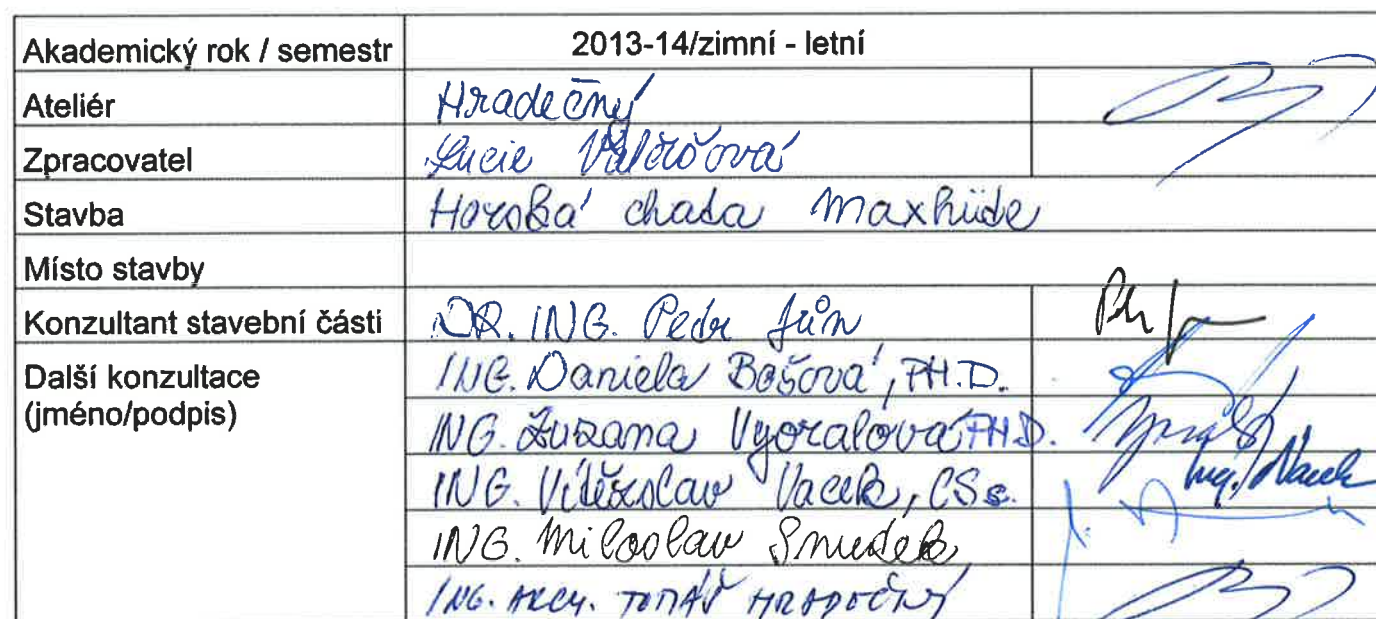 Akademický rok / semestr 2013-14/zimní - letní
Ateliér Hradečný
Zpracovatel Lucie
Stavba Horská chata Maxhütte
Místo stavby
Konzultant stavební části DR. ING. Petr Jůn
Další konzultace ING. Daniela Bošová, PH.D.
(jméno/podpis) ING. Zuzana Vyoralová PH.D.
ING. Vítězslav Vacek, CSc. Ing. Vacek
ING. Miloslav Smutek
ING. ARCH. TOMÁŠ HRADEČNÝ